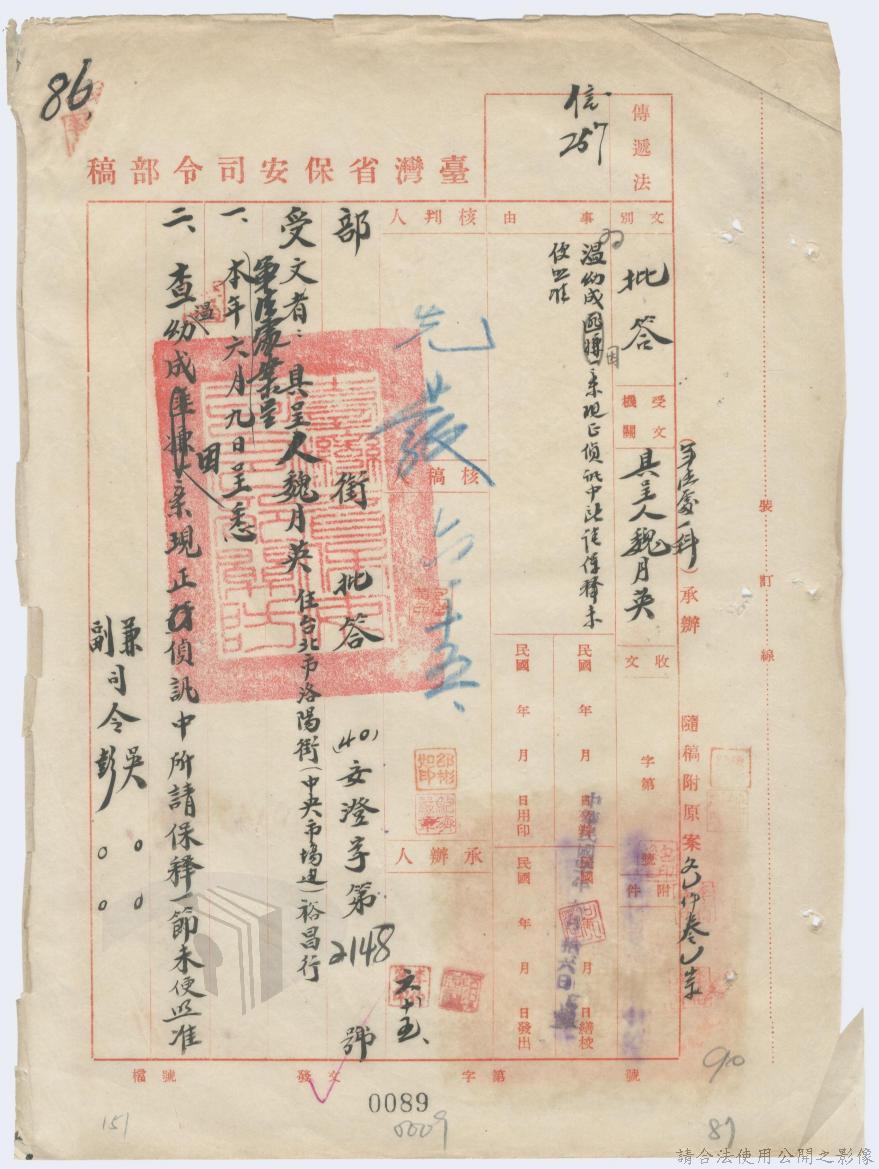 86
臺灣省保安司令部稿
傳遞法
信257
文別
批答
事由
溫幼成因案現正偵訊中所請保釋未便照准
受文機關
具呈人魏月英
（軍法處一科）承辦
隨稿附原案
收文
字第
號
附件
核判人
先發
六、十五、
核稿人
承辦人
六、十五、
民國 年 月 日繕校
民國 年 月 日用印
民國 年 月 日發出
部銜 批答
(40)安澄字第2148號
受文者：具呈人魏月英 住台北市洛陽街（中央市場邊）裕昌行
一、本年六月九日呈悉
二、查溫幼成因案現正偵訊中所請保釋一節未便照准
兼司令吳○○
副司令彭○○
裝訂線
檔號
發文 字第 號
0089
0009
151
90
87
請合法使用公開之影像